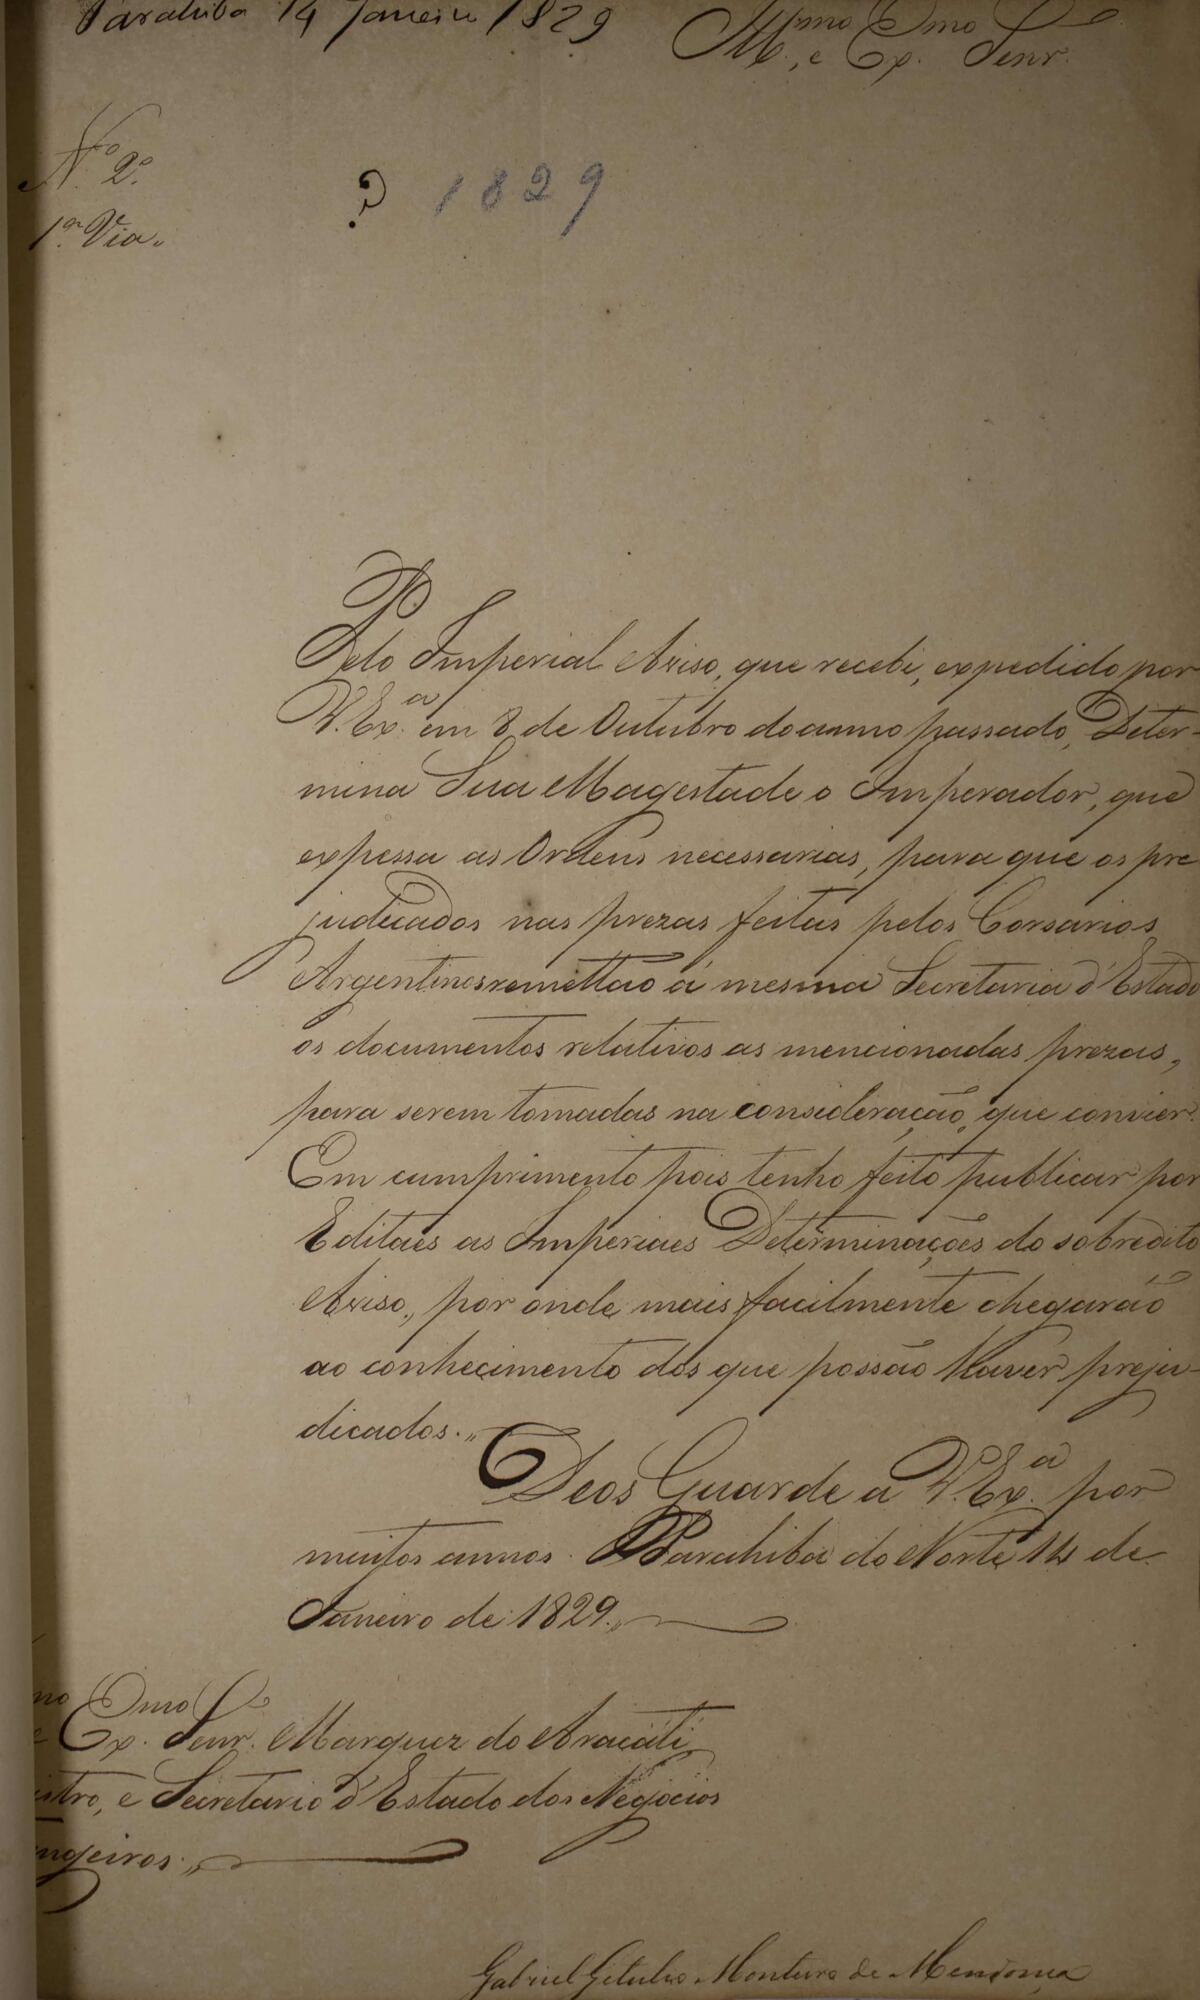 Parahiba 14 Janeiro 1829
Illmo, e Exmo Senr.
No. 2o.
1a. Via.
? 1829
Pelo Imperial Aviso, que recebi, expedido por
V. Exa. em 8 de Outubro do anno passado, Deter-
mina Sua Magestade o Imperador, que
expessa as Ordens necessarias, para que os pre
judicados nas prezas feitas pelos Corsarios
Argentinos remettão á mesma Secretaria d'Estado
os documentos relativos as mencionadas prezas,
para serem tomadas na consideração, que convier.
Em cumprimento pois tenho feito publicar por
Editaes as Imperiaes Determinações do sobredito
Aviso, por onde mais facilmente chegarão
ao conhecimento dos que possão haver preju-
dicados.,,
Deos Guarde a V. Exa. por
muitos annos. Parahiba do Norte 14 de
Janeiro de 1829.,,
mo
e Exmo. Senr. Marquez do Aracati
istro, e Secretario d'Estado dos Negocios
ngeiros.,,
Gabriel Getulio Monteiro de Mendonça